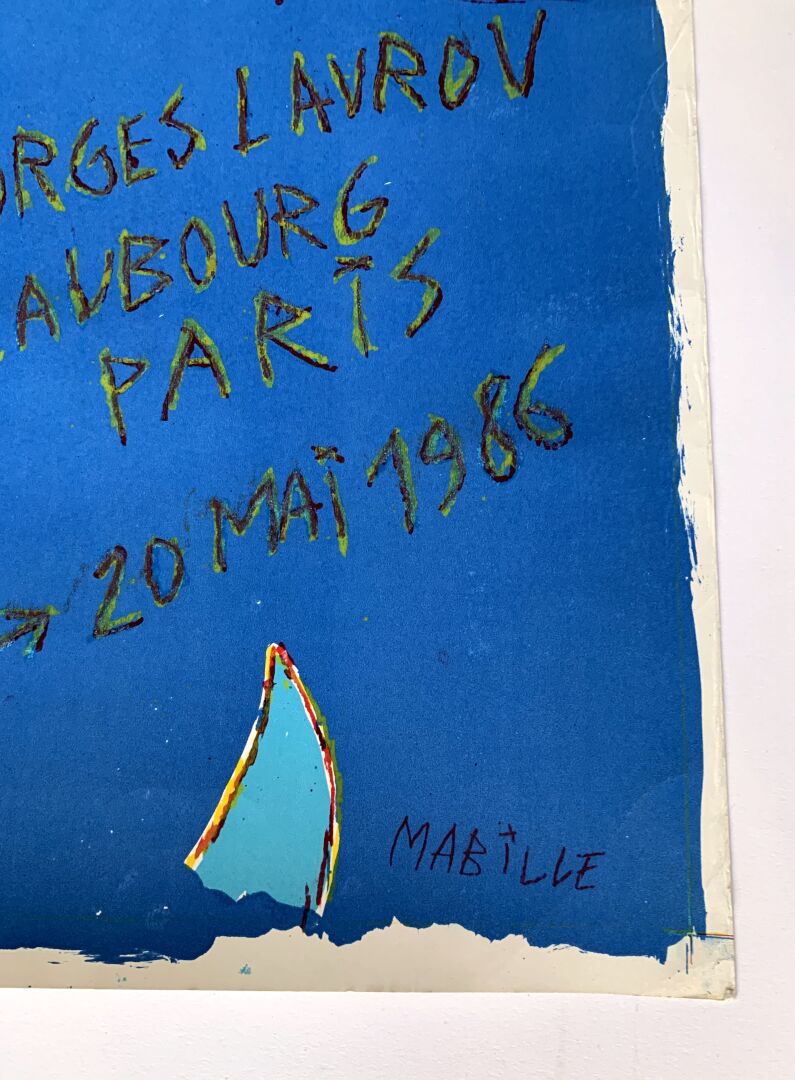 ORGES LAVROV
EAUBOURG
PARIS
→ 20 MAI 1986
MABILLE